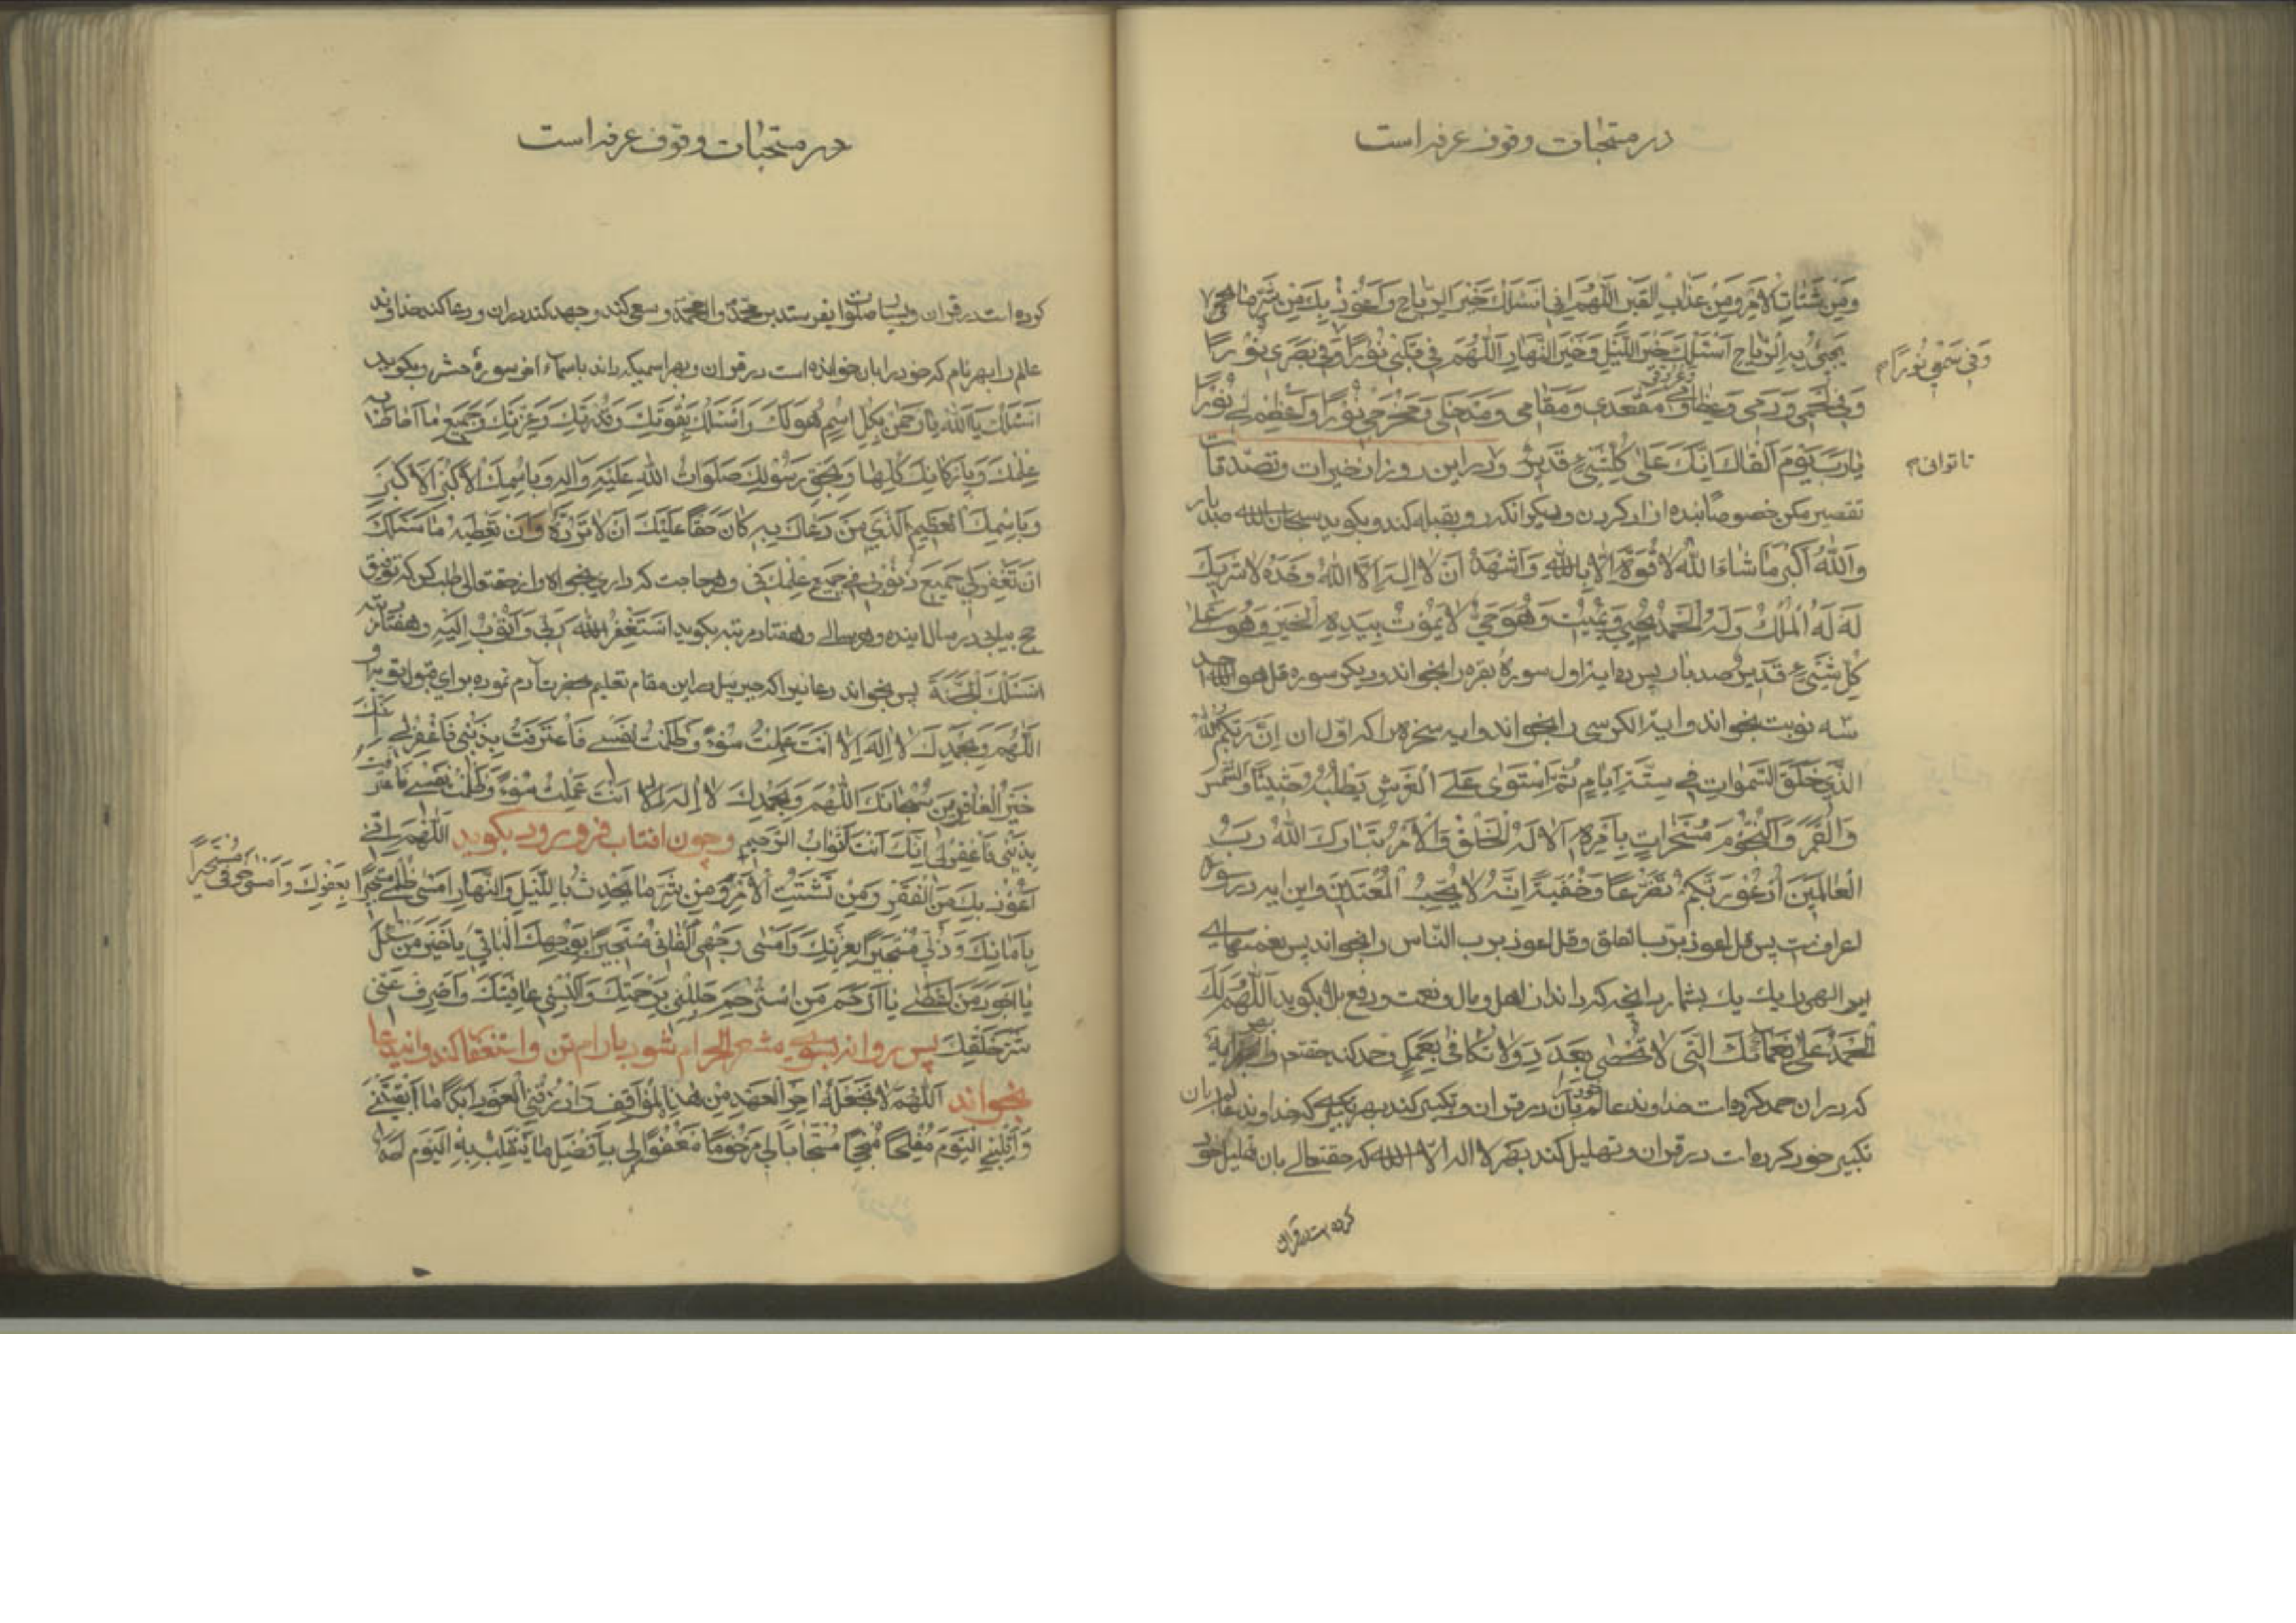 در مستحبات وقوف عرفه است
وَمِنْ شَتَاتِ الْاَمْرِ وَمِنْ عَذَابِ الْقَبْرِ اَللّٰهُمَّ اِنّي اَسْئَلُكَ خَيْرَ الرِّيَاحِ وَاَعُوذُ بِكَ مِنْ شَرِّ مَا
يَجِيئُ بِهِ الرِّيَاحِ اَسْئَلُكَ خَيْرَ اللَّيْلِ وَخَيْرَ النَّهَارِ اَللّٰهُمَّ فِي قَلْبِي نُوْرًا وَفِي بَصَرِي نُوْرًا
وَفِي سَمْعِي نُورًا
وَفِي لَحْمِي وَدَمِي وَعِظَامِي وَعُرُوقِي وَمَقْعَدِي وَمَقَامِي وَمَدْخَلِي وَمَخْرَجِي نُوْرًا وَاَعْظِمْ لِي نُوْرًا
يَا رَبِّ يَوْمَ اَلْقَاكَ اِنَّكَ عَلٰى كُلِّ شَيْءٍ قَدِيرٌ و در این روز از خیرات و تصدقات
تا توانی
تقصیر مکن خصوصا بنده ازاد کردن و رو بقبله کند و بکوید سبحان الله صد بار
وَاللّٰهُ اَكْبَرُ مَا شَاءَ اللّٰهُ لَا قُوَّةَ اِلَّا بِاللّٰهِ وَاَشْهَدُ اَنْ لَا اِلٰهَ اِلَّا اللّٰهُ وَحْدَهُ لَا شَرِيكَ
لَهُ لَهُ الْمُلْكُ وَلَهُ الْحَمْدُ يُحْيِي وَيُمِيتُ وَهُوَ حَيٌّ لَا يَمُوْتُ بِيَدِهِ الْخَيْرُ وَهُوَ عَلٰى
كُلِّ شَيْءٍ قَدِيرٌ صد بار پس ده ایه از اول سورهٔ بقره را بخواند و دیکر سوره قل هو الله احد
سه نوبت بخواند و ایة الکرسی را بخواند و ایه سخره را که اول ان اِنَّ رَبَّكُمُ اللّٰهُ
الَّذِي خَلَقَ السَّمٰوَاتِ فِي سِتَّةِ اَيَّامٍ ثُمَّ اسْتَوٰى عَلَى الْعَرْشِ يَطْلُبُهُ حَثِيثًا وَالشَّمْسَ
وَالْقَمَرَ وَالنُّجُوْمَ مُسَخَّرَاتٍ بِاَمْرِهِ اَلَا لَهُ الْخَلْقُ وَالْاَمْرُ تَبَارَكَ اللّٰهُ رَبُّ
الْعَالَمِينَ اُدْعُوْ رَبَّكُمْ تَضَرُّعًا وَخُفْيَةً اِنَّهُ لَا يُحِبُّ الْمُعْتَدِينَ و این ایه در سوره
اعرافست پس قل اعوذ برب الفلق و قل اعوذ برب الناس را بخواند پس نعمتهای
الهی را یك یك بشمارد انچه که داند از اهل و مال و نعمت و رفع بلا بکوید اَللّٰهُمَّ لَكَ
الْحَمْدُ عَلٰى نَعْمَائِكَ الَّتِي لَا تُحْصٰى بِعَدَدٍ وَلَا تُكَافٰى بِعَمَلٍ و حمد کند
که در ان حمد کرده است خداوند عالم در قران و تکبیر کند بهر تکبیری که خداوند عالم در ان
تکبیر خود کرده است در قران و تهلیل کند بهر لا اله الا الله که حقتعالی بان تهلیل خود
کرده است در قران
در مستحبات وقوف عرفه است
کرده است در قران و بسیار صلوات بفرستد بر محمد وال محمد و سعی کند و جهد کند در ان و دعا کند خداوند
عالم را بهر نام که خود را بان خوانده است در قران و بهر اسمیکه داند باسماء اخر سورهٔ حشر و بکوید
اَسْئَلُكَ يَا اَللّٰهُ يَا رَحْمٰنُ بِكُلِّ اسْمٍ هُوَ لَكَ وَاَسْئَلُكَ بِقُوَّتِكَ وَقُدْرَتِكَ وَعِزَّتِكَ وَجَمِيعِ مَا اَحَاطَ بِهِ
عِلْمُكَ وَبِاَرْكَانِكَ كُلِّهَا وَبِحَقِّ رَسُوْلِكَ صَلَوَاتُ اللّٰهِ عَلَيْهِ وَاٰلِهِ وَبِاسْمِكَ الْاَكْبَرِ الْاَكْبَرِ
وَبِاسْمِكَ الْعَظِيمِ الَّذِي مَنْ دَعَاكَ بِهِ كَانَ حَقًّا عَلَيْكَ اَنْ لَا تَرُدَّهُ وَاَنْ تُعْطِيَهُ مَا سَئَلَكَ
اَنْ تَغْفِرَ لِي جَمِيعَ ذُنُوْبِي فِي جَمِيعِ عِلْمِكَ فِيَّ و هر حاجت که داری بخواه و از حقتعالی طلب کن که توفیق
حج بیابی در سال اینده و هر سالی و هفتاد مرتبه بکوید اَسْتَغْفِرُ اللّٰهَ رَبِّي وَاَتُوْبُ اِلَيْهِ و هفتاد مرتبه
اَسْئَلُكَ الْجَنَّةَ پس بخواند دعائیرا که جبرئیل در این مقام تعلیم حضرت ادم نموده برای قبول توبه او
اَللّٰهُمَّ وَبِحَمْدِكَ لَا اِلٰهَ اِلَّا اَنْتَ عَمِلْتُ سُوْءً وَظَلَمْتُ نَفْسِي فَاعْتَرَفْتُ بِذَنْبِي فَاغْفِرْ لِي اِنَّكَ
خَيْرُ الْغَافِرِينَ سُبْحَانَكَ اللّٰهُمَّ وَبِحَمْدِكَ لَا اِلٰهَ اِلَّا اَنْتَ عَمِلْتُ سُوْءً وَظَلَمْتُ نَفْسِي فَاعْتَرَفْتُ
بِذَنْبِي فَاغْفِرْ لِي اِنَّكَ اَنْتَ التَّوَّابُ الرَّحِيمُ و چون افتاب فرو رود بکوید اَللّٰهُمَّ اِنِّي
اَعُوْذُ بِكَ مِنَ الْفَقْرِ وَمِنْ تَشَتُّتِ الْاَمْرِ وَمِنْ شَرِّ مَا يَحْدِثُ بِاللَّيْلِ وَالنَّهَارِ اَمْسٰى ظُلْمِي مُسْتَجِيرًا بِعَفْوِكَ وَاَمْسٰى خَوْفِي مُسْتَجِيرًا
بِاَمَانِكَ وَذُلِّي مُسْتَجِيرًا بِعِزَّتِكَ وَاَمْسٰى وَجْهِيَ الْفَانِي مُسْتَجِيرًا بِوَجْهِكَ الْبَاقِي يَا خَيْرَ مَنْ سُئِلَ
يَا اَجْوَدَ مَنْ اَعْطٰى يَا اَرْحَمَ مَنِ اسْتُرْحِمَ جَلِّلْنِي بِرَحْمَتِكَ وَاَلْبِسْنِي عَافِيَتَكَ وَاصْرِفْ عَنِّي
شَرَّ خَلْقِكَ پس روانه بسوی مشعر الحرام شود بارام تن و استغفار کند و این دعا
بخواند اَللّٰهُمَّ لَا تَجْعَلْهُ اٰخِرَ الْعَهْدِ مِنْ هٰذَا الْمَوْقِفِ وَارْزُقْنِي الْعَوْدَ اَبَدًا مَا اَبْقَيْتَنِي
وَاقْلِبْنِي الْيَوْمَ مُفْلِحًا مُنْجِحًا مُسْتَجَابًا لِي مَرْحُوْمًا مَغْفُوْرًا لِي بِاَفْضَلِ مَا يَنْقَلِبُ بِهِ الْيَوْمَ